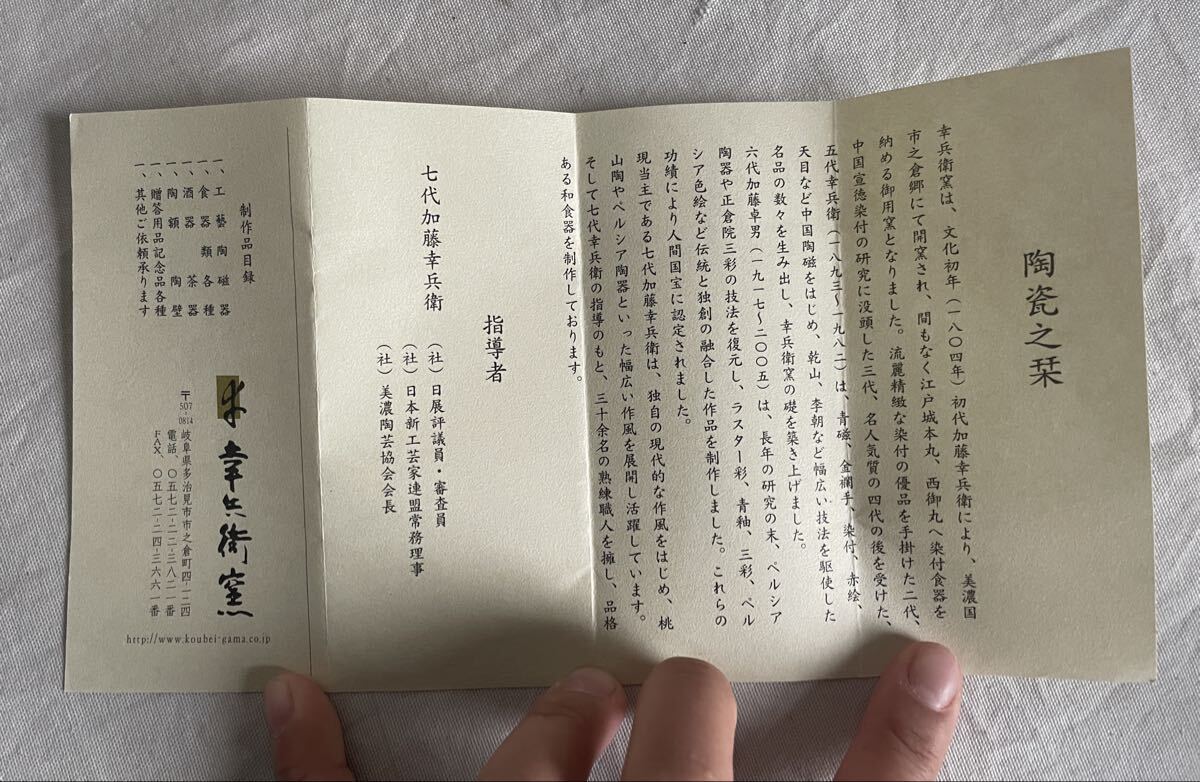 陶瓷之栞
幸兵衛窯は、文化初年（一八〇四年）初代加藤幸兵衛により、美濃国
市之倉郷にて開窯され、間もなく江戸城本丸、西御丸へ染付食器を
納める御用窯となりました。流麗精緻な染付の優品を手掛けた二代、
中国宣徳染付の研究に没頭した三代、名人気質の四代の後を受けた、
五代幸兵衛（一八九三〜一九八二）は、青磁、金襴手、染付、赤絵、
天目など中国陶磁をはじめ、乾山、李朝など幅広い技法を駆使した
名品の数々を生み出し、幸兵衛窯の礎を築き上げました。
六代加藤卓男（一九一七〜二〇〇五）は、長年の研究の末、ペルシア
陶器や正倉院三彩の技法を復元し、ラスター彩、青釉、三彩、ペル
シア色絵など伝統と独創の融合した作品を制作しました。これらの
功績により人間国宝に認定されました。
現当主である七代加藤幸兵衛は、独自の現代的な作風をはじめ、桃
山陶やペルシア陶器といった幅広い作風を展開し活躍しています。
そして七代幸兵衛の指導のもと、三十余名の熟練職人を擁し、品格
ある和食器を制作しております。
指導者
七代加藤幸兵衛
（社）日展評議員・審査員
（社）日本新工芸家連盟常務理事
（社）美濃陶芸協会会長
制作品目録
一、工藝陶磁器
一、食器類各種
一、酒器 茶器
一、陶額 陶壁
一、贈答用品記念品各種
一、其他ご依頼承ります
幸兵衛窯
〒507-0814 岐阜県多治見市市之倉町四-一二四
電話、〇五七二-二二-三八二一番
FAX、〇五七二-二四-三六六一番
http://www.koubei-gama.co.jp